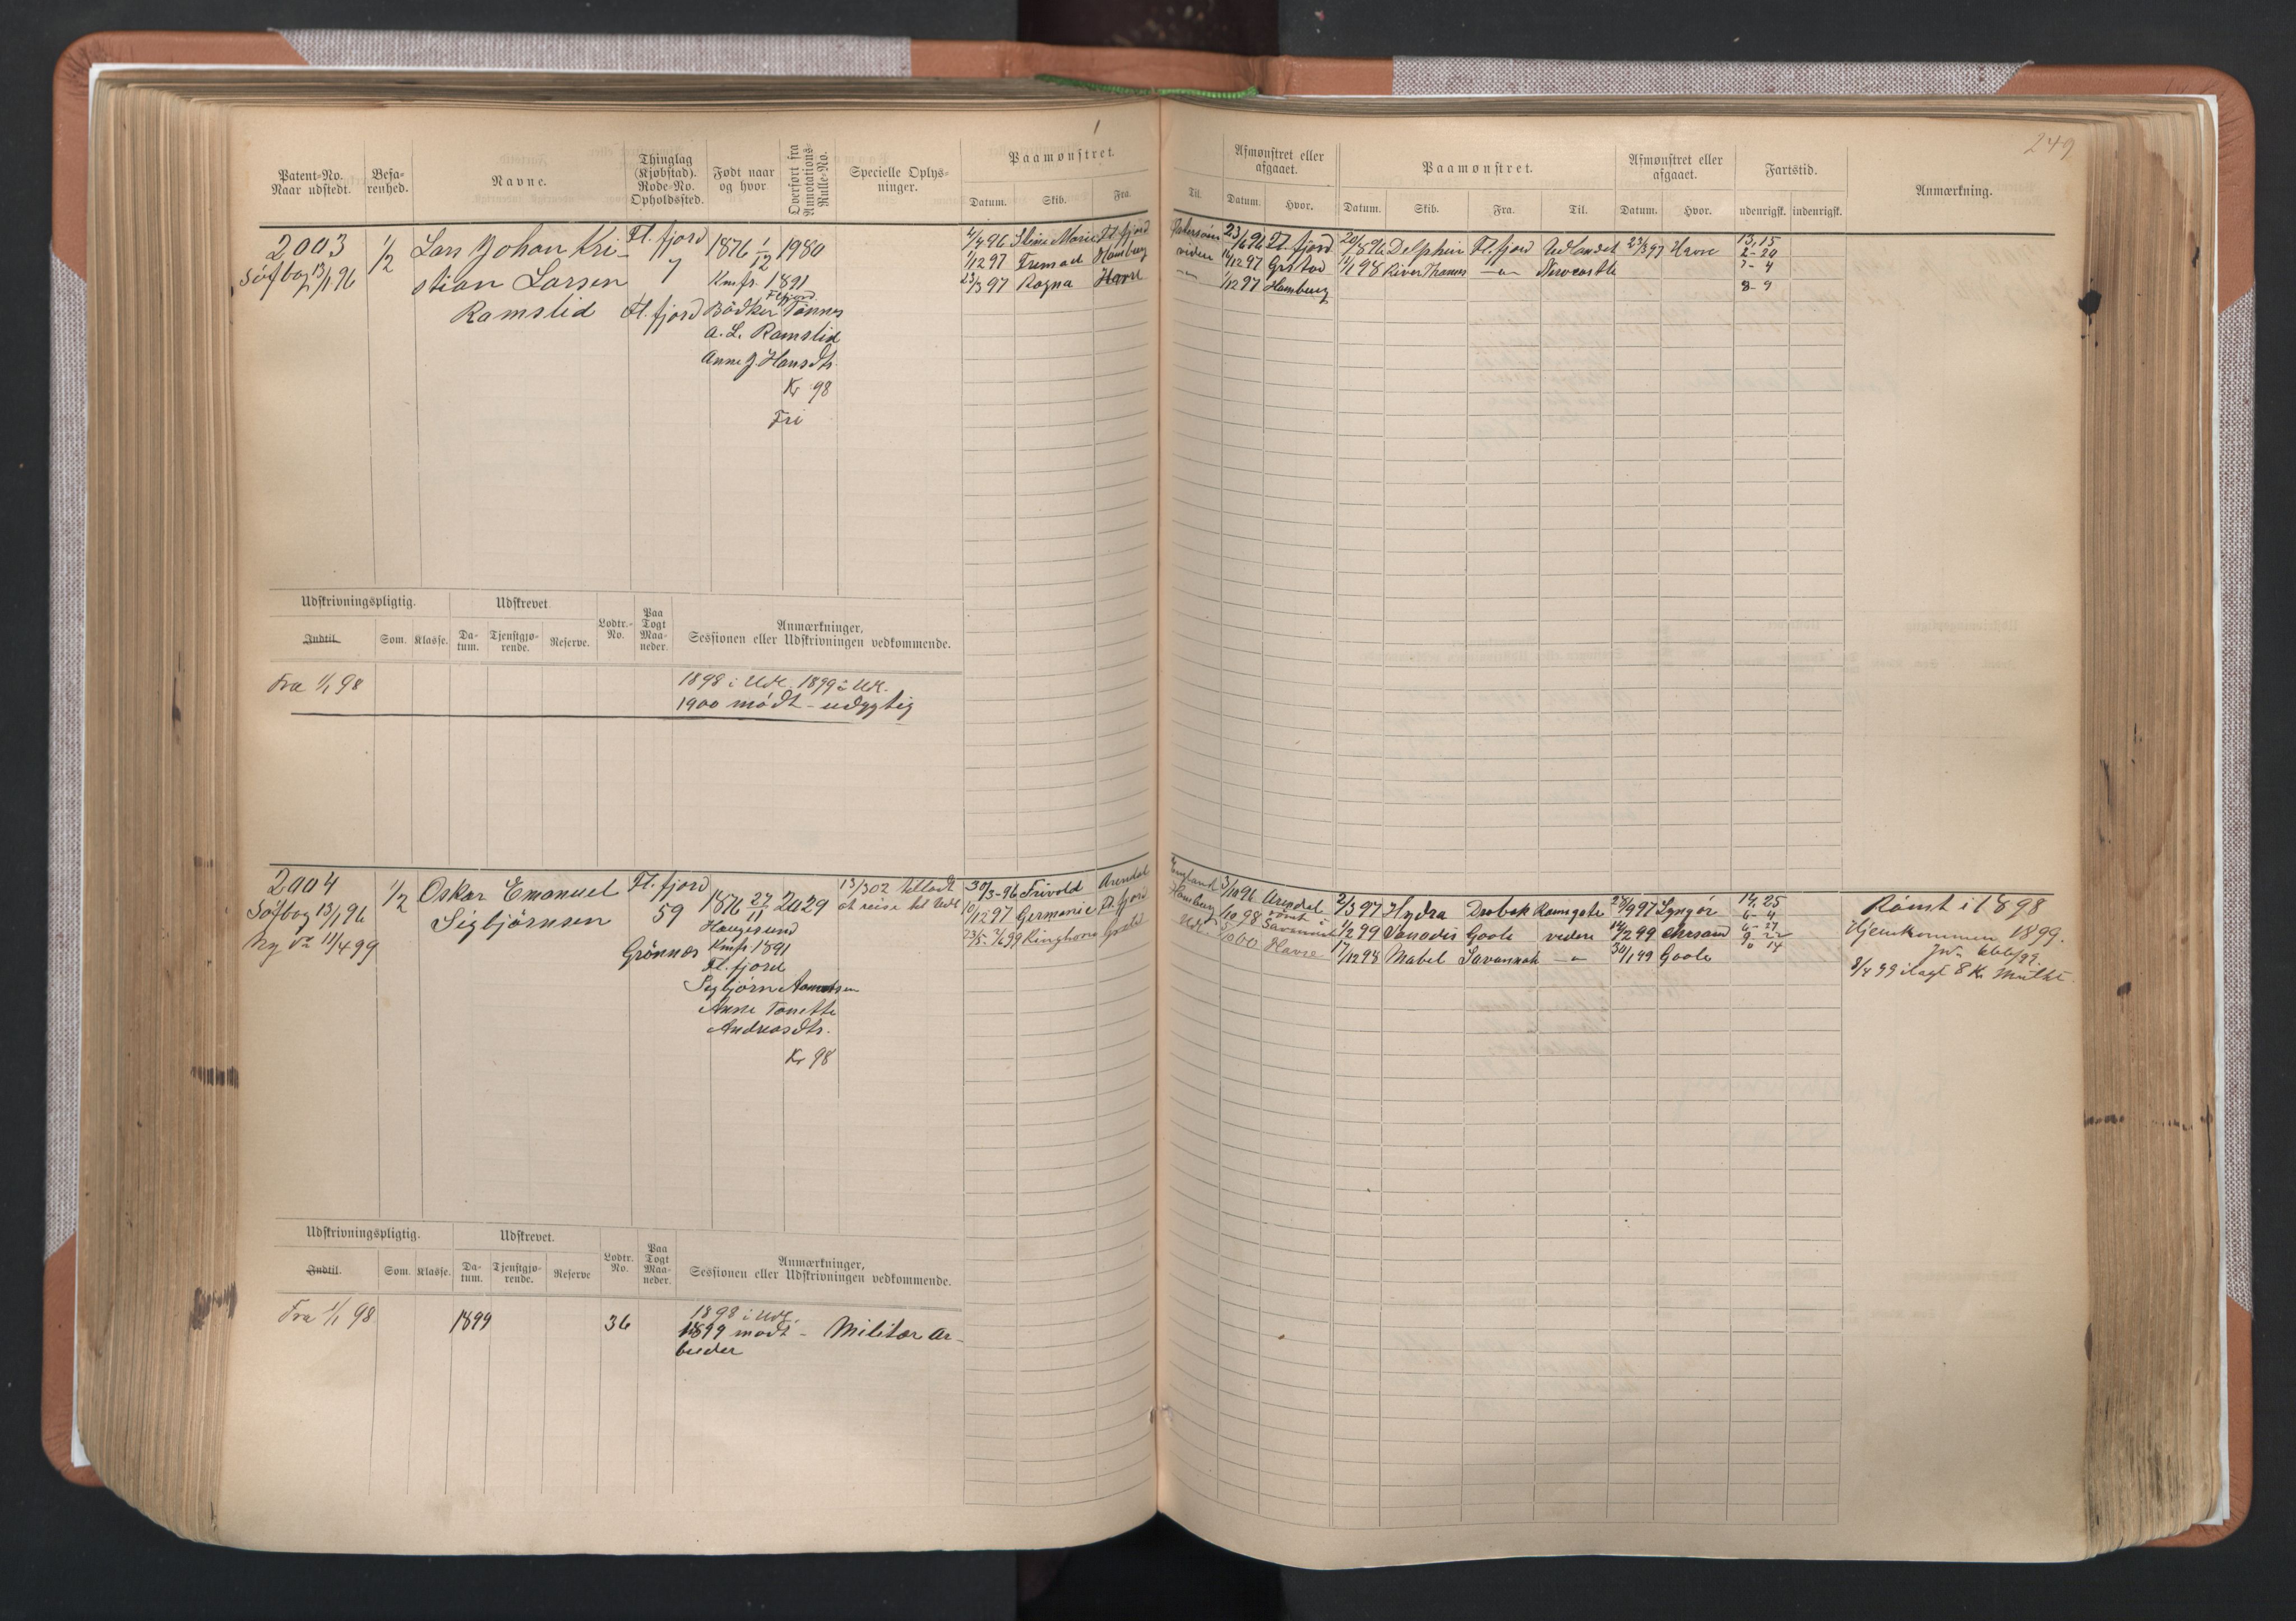 249
Patent-No. Naar udstedt.
Befa-renhed.
Navne.
Thinglag (Kjøbstad). Rode-No. Opholdssted.
Født naar og hvor
Overført fra Annotations-Rulle-No.
Specielle Oplys-ninger.
Paamønstret.
Datum. Skib. Fra. Til.
Afmønstret eller afgaaet.
Datum. Hvor.
Paamønstret.
Datum. Skib. Fra. Til.
Afmønstret eller afgaaet.
Datum. Hvor.
Fartstid.
udenrigsk. indenrigsk.
Anmærkning.
2003
Söfbog 13/1 96
1/2
Lars Johan Kri-
stian Larsen
Ramslid
Fl. fjord
7
Fl. fjord
1876 1/12 1980
Kmfr. 1891
Fl. fjord.
Bödker Tönnes
A. L. Ramslid
Anne J. Hansdtr.
Kr 98
Fri
4/4 96 Stine Marie Fl. fjord
1/12 97 Fremad Hamburg
23/3 97 Ragna Havre
23/6 96 Fl. fjord
videre 14/12 97 Grstad
1/12 97 Hamburg
20/8 96 Delphin Fl. fjord Udlandet 23/3 97 Havre
11/1 98 River Thames —"— Newcastle
13, 15
2- 20
7- 4
8- 9
Udskrivningspligtig. Udskrevet.
Indtil. Som. Klasse. Da-tum. Tjenstgjø-rende. Reserve. Lodtr.-No. Paa Togt Maa-neder.
Anmærkninger, Sessionen eller Udskrivningen vedkommende.
Fra 1/1 98
1898 i Udl. 1899 i Udl.
1900 mödt - udygtig
2004
Söfbog 13/1 96
Ny do 11/4 99
1/2
Oskar Emanuel
Sigbjörnsen
Fl. fjord
59
Grönnes
1876 27/11 2029
Haugesund
Kmfr 1891
Fl. fjord
Sigbjörn Aanensen
Anne Tonette
Andreasdtr.
Kr 98
13/3 02 tilladt
at reise til Udl
30/3-96 Frivold Arendal
10/12 97 Germanic Fl. fjord
Kinghorn
England 3/10 96 Arendal
Hamburg /10 98 römt Savannah
Udl. /10 00 Havre
2/3 97 Hydra Drobak Ramsgate 28/9 97 Lyngör
1/2 99 Vanadis Goole videre 14/2 99 Chrsand
17/12 98 Mabel Savannah —"— 30/1 99 Goole
14, 25
6- 4
6- 27
9- 22
0 14
Römt i 1898
Hjemkommen 1899.
8/4 99 ilagt 8 Kr Mulkt.
Udskrivningspligtig. Udskrevet.
Indtil. Som. Klasse. Da-tum. Tjenstgjø-rende. Reserve Lodtr. No. Paa Togt Maa-neder.
Anmærkninger, Sessionen eller Udskrivningen vedkommende.
Fra 1/1 98
1899
36
1898 i Udl.
1899 mödt - Militær Ar-
beider